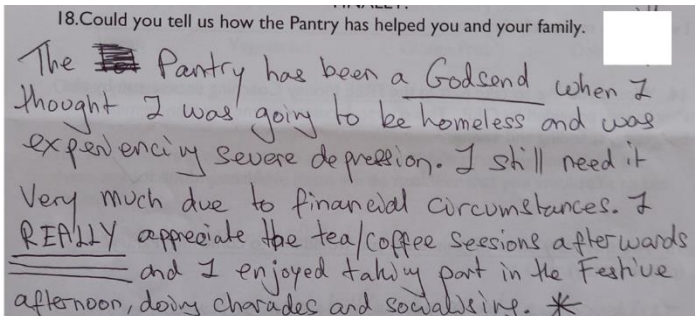 18.Could you tell us how the Pantry has helped you and your family.
The Pantry has been a Godsend when I
thought I was going to be homeless and was
experiencing severe depression. I still need it
Very much due to financial circumstances. I
REALLY appreciate the tea/coffee sessions afterwards
and I enjoyed taking part in the Festive
afternoon, doing charades and socialising. *